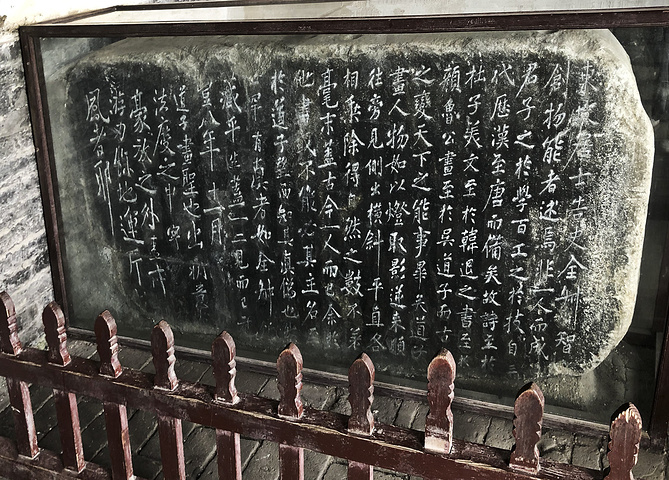 東坡居士告史全叔 智
創物能者述焉非一人而成
君子之於學百工之於技自三
代歷漢至唐而備矣故詩至於
杜子美文至於韓退之書至於
顏魯公畫至於吳道子而古
之變天下之能事畢矣道子
畫人物如以燈取影逆來順
往旁見側出橫斜平直各
相乘除得自然之數不差
毫末蓋古今一人而已余於
他畫或不能必其主名至
於道子望而知其真偽也
罕有真者如全叔
藏平生蓋一二見而已元
豐八年十一月
道子畫聖也出新意
法度之中寄
豪放之外
游刃餘地運斤
風者耶